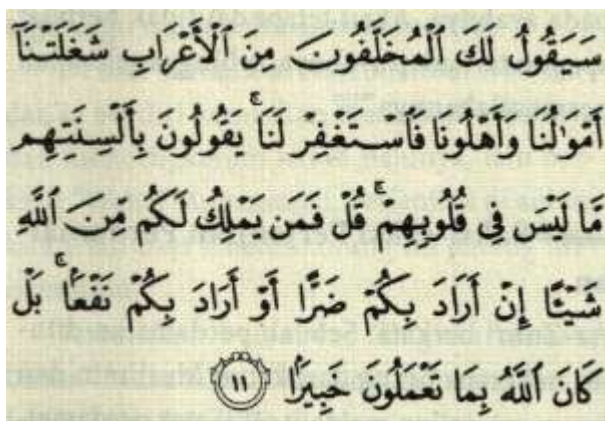 سَيَقُولُ لَكَ ٱلْمُخَلَّفُونَ مِنَ ٱلْأَعْرَابِ شَغَلَتْنَآ
أَمْوَٰلُنَا وَأَهْلُونَا فَٱسْتَغْفِرْ لَنَا ۚ يَقُولُونَ بِأَلْسِنَتِهِم
مَّا لَيْسَ فِى قُلُوبِهِمْ ۚ قُلْ فَمَن يَمْلِكُ لَكُم مِّنَ ٱللَّهِ
شَيْـًٔا إِنْ أَرَادَ بِكُمْ ضَرًّا أَوْ أَرَادَ بِكُمْ نَفْعًۢا ۚ بَلْ
كَانَ ٱللَّهُ بِمَا تَعْمَلُونَ خَبِيرًۢا ١١